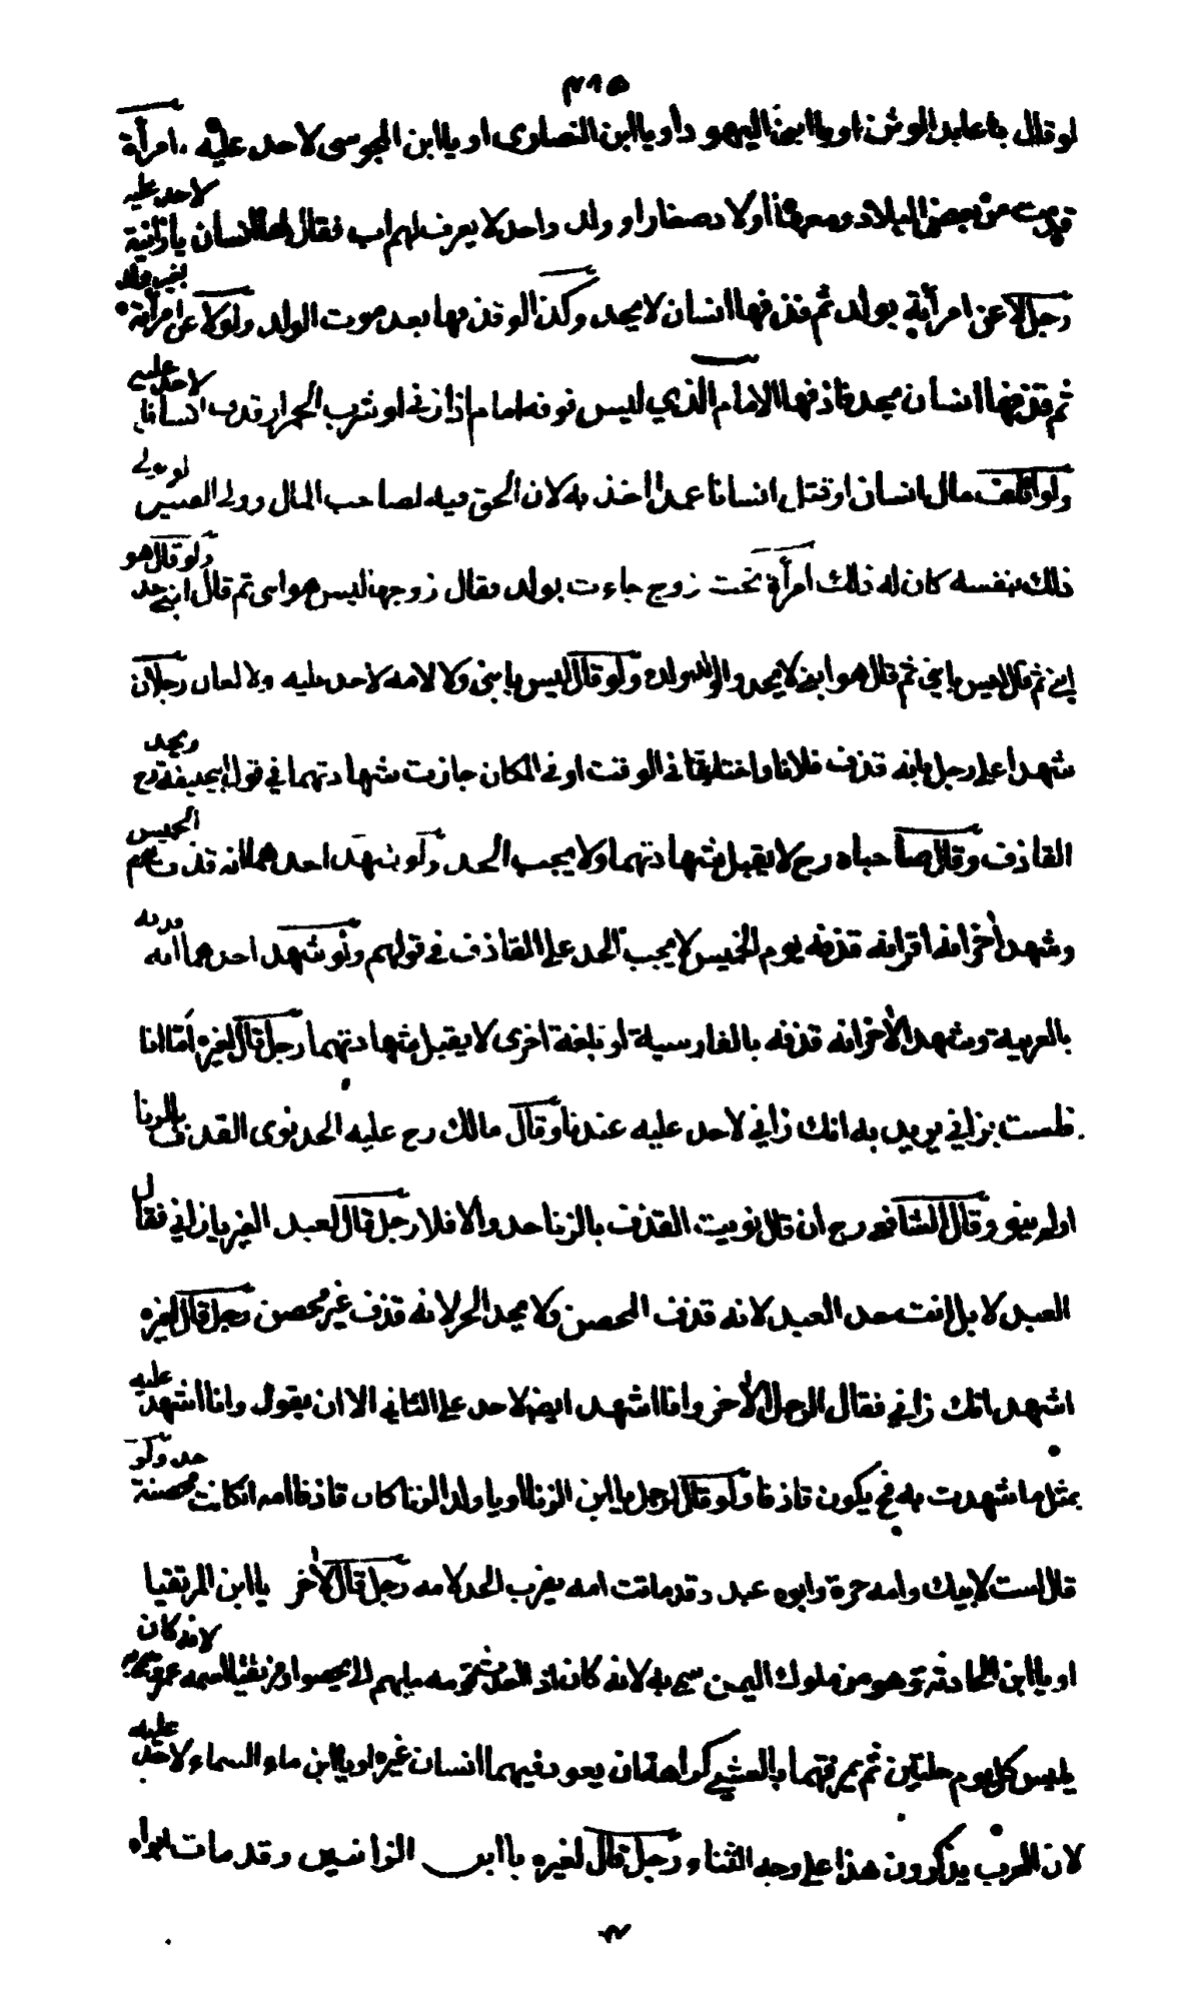 ٣١٥
لو قال يا عابد الوثن او يا ابن اليهود او يا ابن النصارى او يا ابن المجوسى لا حد عليه . امرأة
قدمت من بعض البلاد ومعها اولاد صغار او ولد واحد لا يعرف لهم اب فقال لها انسان يا زانية لا حد عليه
رجل لاعن امرأته بولد ثم قذفها انسان لا يحد وكذا لو قذفها بعد موت الولد ولو لاعن امرأته بغير ولد
ثم قذفها انسان يحد قاذفها الامام الذي ليس فوقه امام اذا زنى او شرب الخمر او قذف انسانا لا حد عليه
ولو اتلف مال انسان او قتل انسانا عمدا اخذ به لان الحق فيه لصاحب المال وولى القتيل لو ولي
ذلك بنفسه كان له ذلك امرأة تحت زوج جاءت بولد فقال زوجها ليس هو ابنى ثم قال ابني حد ولو قال هو
ابني ثم قال ليس بابني ثم قال هو ابني لا يحد والولد ولده ولو قال ليس بابنى ولا لامه لا حد عليه ولا لعان رجلان
شهدا على رجل بانه قذف فلانا واختلفا في الوقت او في المكان جازت شهادتهما في قول ابي حنيفة رح ويحد
القاذف وقال صاحباه رح لا يقبل شهادتهما ولا يجب الحد ولو شهد احدهما انه قذف يوم الخميس
وشهد الآخر انه اقر انه قذفه يوم الخميس لا يجب الحد على القاذف في قولهم ولو شهد احدهما انه قذفه
بالعربية وشهد الآخر انه قذفه بالفارسية او بلغة اخرى لا يقبل شهادتهما رجل قال لغيره امّا انا
فلست بزاني يريد به انك زاني لا حد عليه عندنا وقال مالك رح عليه الحد نوى القذف بالزنا
اولم ينو وقال الشافعي رح ان قال نويت القذف بالزنا حد والا فلا رجل قال لعبد الغير يا زاني فقال
العبد لا بل انت حد العبد لانه قذف المحصن ولا يحد الحر لانه قذف غير محصن رجل قال لغيره
اشهد انك زاني فقال الرجل الآخر وانا اشهد ايضا لا حد على الثاني الا ان يقول وانا اشهد عليه
بمثل ما شهدت به فح يكون قاذفا ولو قال لرجل يا ابن الزنا او يا ولد الزنا كان قاذفا امه ان كانت محصنة حد ولو
قال لست لابيك وامه حرة وابوه عبد وقد ماتت امه يضرب الحد لامه رجل قال لآخر يا ابن المزيقيا
او يا ابن وهو من ملوك اليمن سمي به لانه كان لانه كان
يلبس كل يوم حلتين ثم يمزقهما بالعشي كراهة ان يعود فيهما انسان غيره او يا ابن ماء السماء لا حد عليه
لان العرب يذكرون هذا على وجه الثناء رجل قال لغيره يا ابن الزانيين وقد مات ابواه